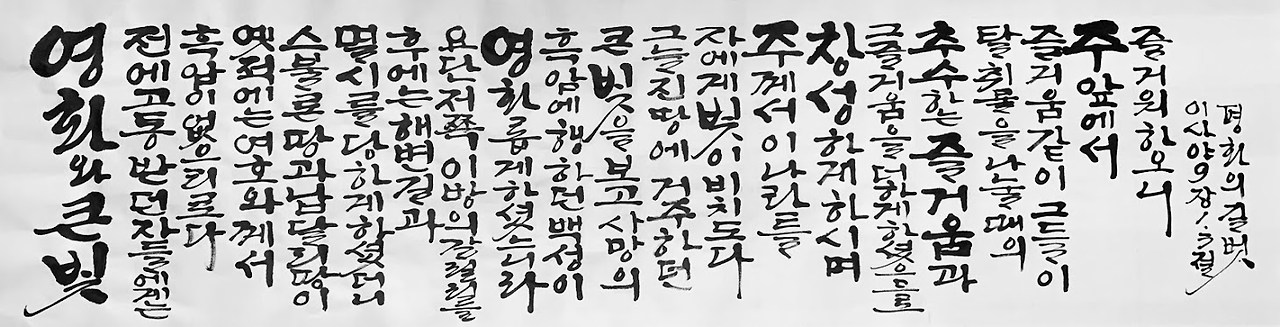 영화와 큰 빛
전에 고통 받던 자들에겐
흑암이 없으리로다
옛적에는 여호와께서
스불론 땅과 납달리 땅이
멸시를 당하게 하셨더니
후에는 해변 길과
요단 저쪽 이방의 갈릴리를
영화롭게 하셨느니라
흑암에 행하던 백성이
큰 빛을 보고 사망의
그늘진 땅에 거주하던
자에게 빛이 비치도다
주께서 이 나라를
창성하게 하시며
그 즐거움을 더하게 하셨으므로
추수하는 즐거움과
탈취물을 나눌 때의
즐거움 같이 그들이
주 앞에서
즐거워하오니
이사야 9장 1.3절
평화의 길벗